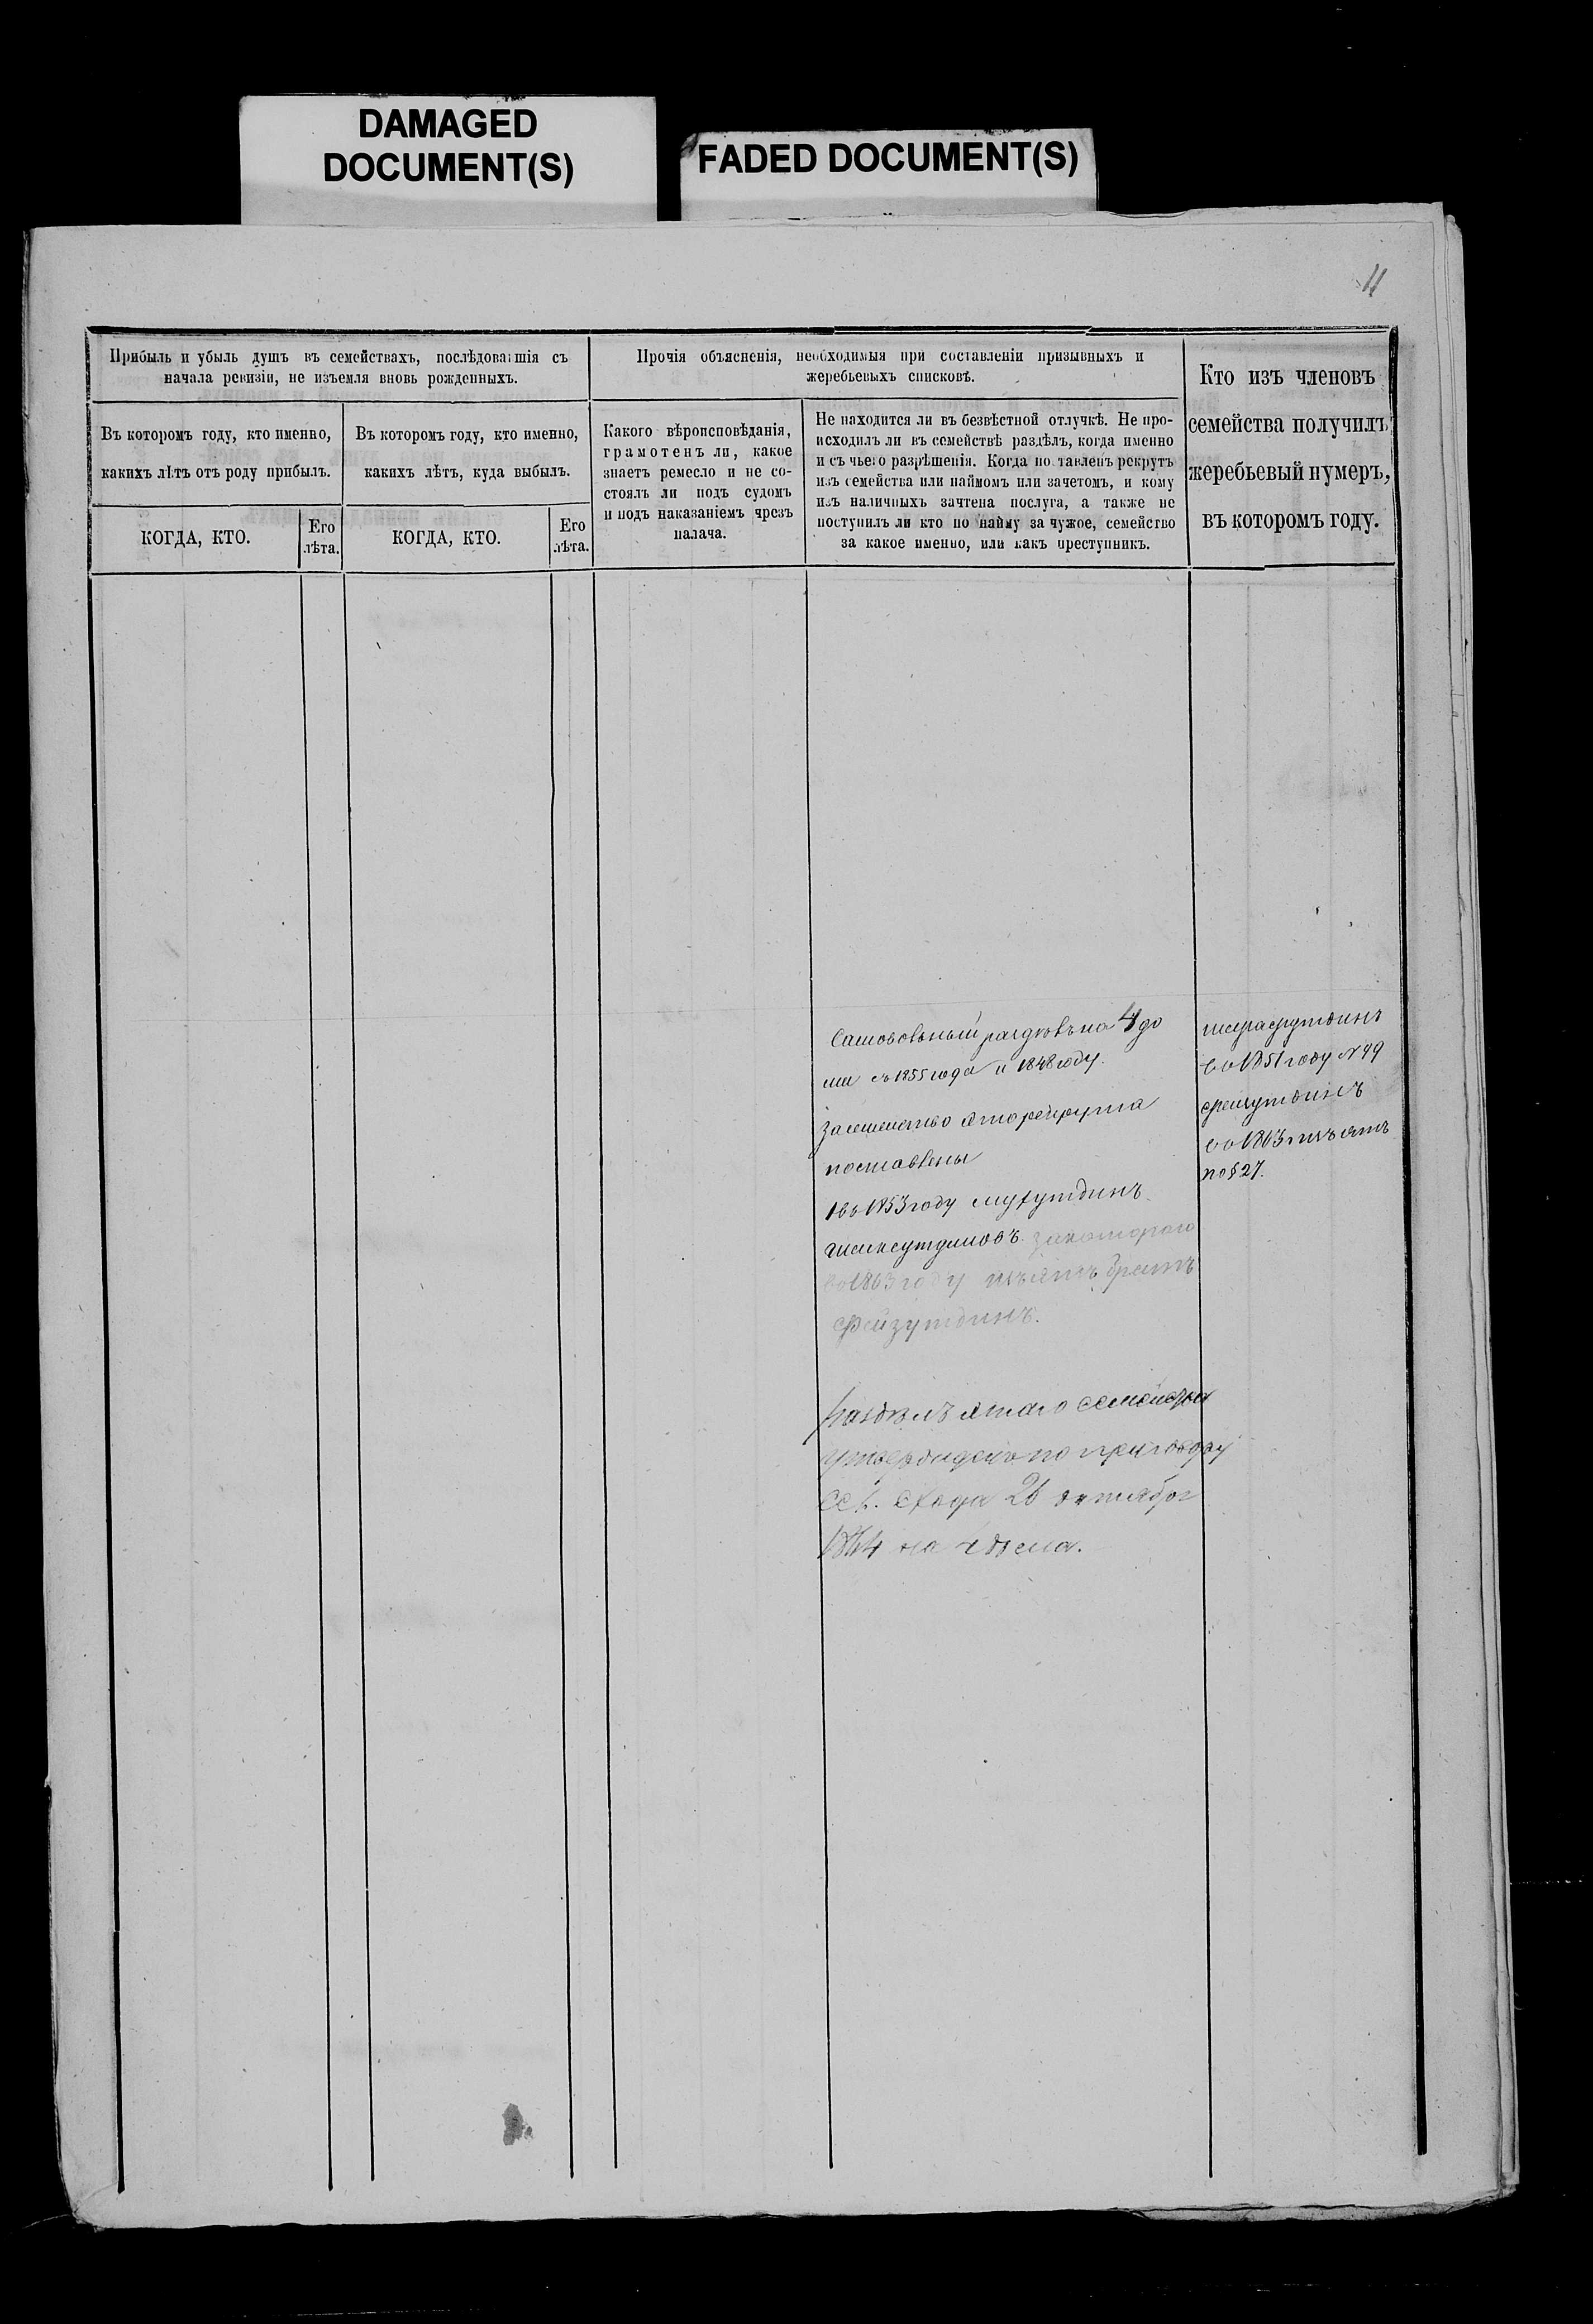 DAMAGED
DOCUMENT(S)
FADED DOCUMENT(S)
11
Прибыль и убыль душъ въ семействахъ, послѣдовавшія съ
начала ревизіи, не изъемля вновь рожденныхъ.
Прочія объясненія, необходимыя при составленіи призывныхъ и
жеребьевыхъ списковъ.
Кто изъ членовъ
семейства получилъ
жеребьевый нумеръ,
въ которомъ году.
Въ которомъ году, кто именно,
какихъ лѣтъ отъ роду прибылъ.
Въ которомъ году, кто именно,
какихъ лѣтъ, куда выбылъ.
Какого вѣроисповѣданія,
грамотенъ ли, какое
знаетъ ремесло и не со-
стоялъ ли подъ судомъ
и подъ наказаніемъ чрезъ
палача.
Не находится ли въ безвѣстной отлучкѣ. Не про-
исходилъ ли въ семействѣ раздѣлъ, когда именно
и съ чьего разрѣшенія. Когда поставленъ рекрутъ
изъ семейства или наймомъ или зачетомъ, и кому
изъ наличныхъ зачтена послуга, а также не
поступилъ ли кто по найму за чужое, семейство
за какое именно, или какъ преступникъ.
КОГДА, КТО.
Его
лѣта.
КОГДА, КТО.
Его
лѣта.
Самовольный раздѣлъ на 4 до
ма съ 1855 года и 1848 году.
За семейство это рекрута
поставлены
1 въ 1853 году
за котораго
во 1863 году изъятъ братъ
Фейзутдинъ.
Раздѣлъ этаго семейства
утвержденъ по приговору
схода 26 октября
1864 на 4 дома.
во 1851 году №99
Фейзутдинъ
во 1863 изъятъ
по §27.